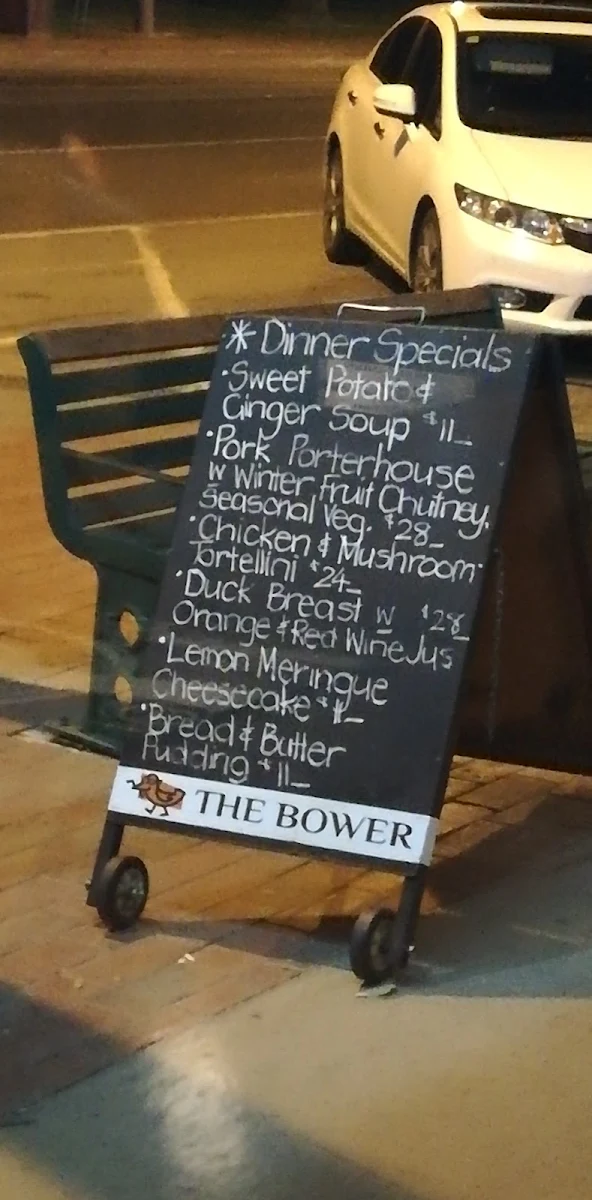 * Dinner Specials
· Sweet Potato &
Ginger Soup $11_
· Pork Porterhouse
w Winter Fruit Chutney,
Seasonal Veg. $28_
· Chicken & Mushroom
Tortellini $24_
· Duck Breast w $28_
Orange & Red Wine Jus
· Lemon Meringue
Cheesecake
· Bread & Butter
Pudding $11_
THE BOWER